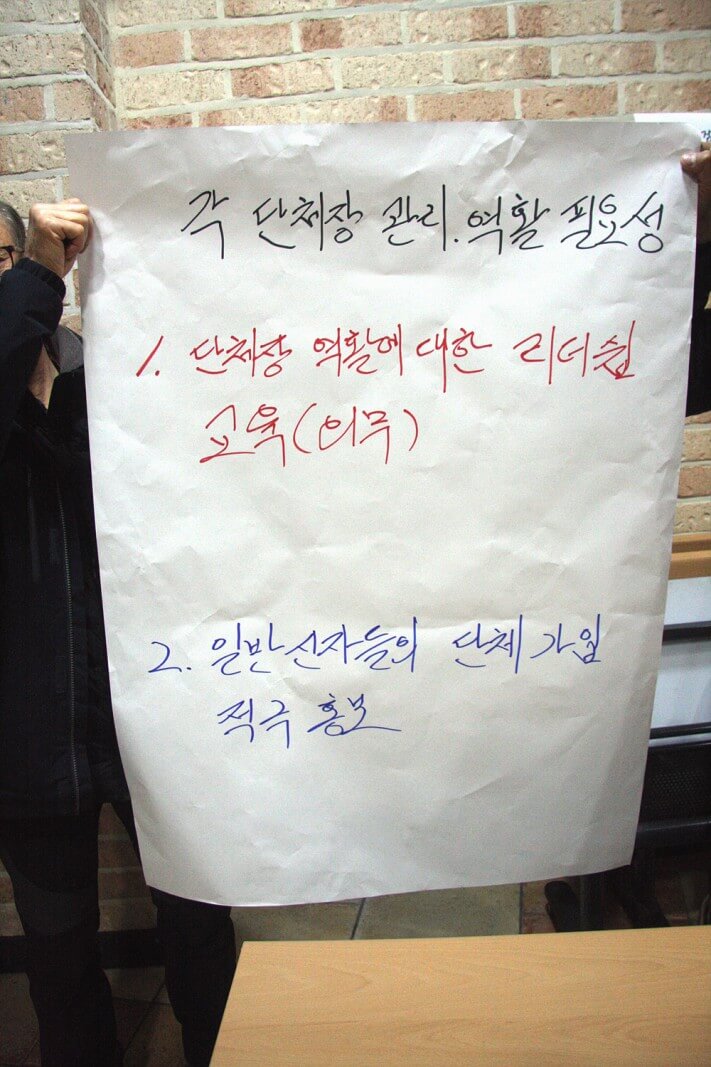 각 단체장 관리.역활 필요성
1. 단체장 역활에 대한 리더쉽
교육(의무)
2. 일반신자들의 단체 가입
적극 홍보